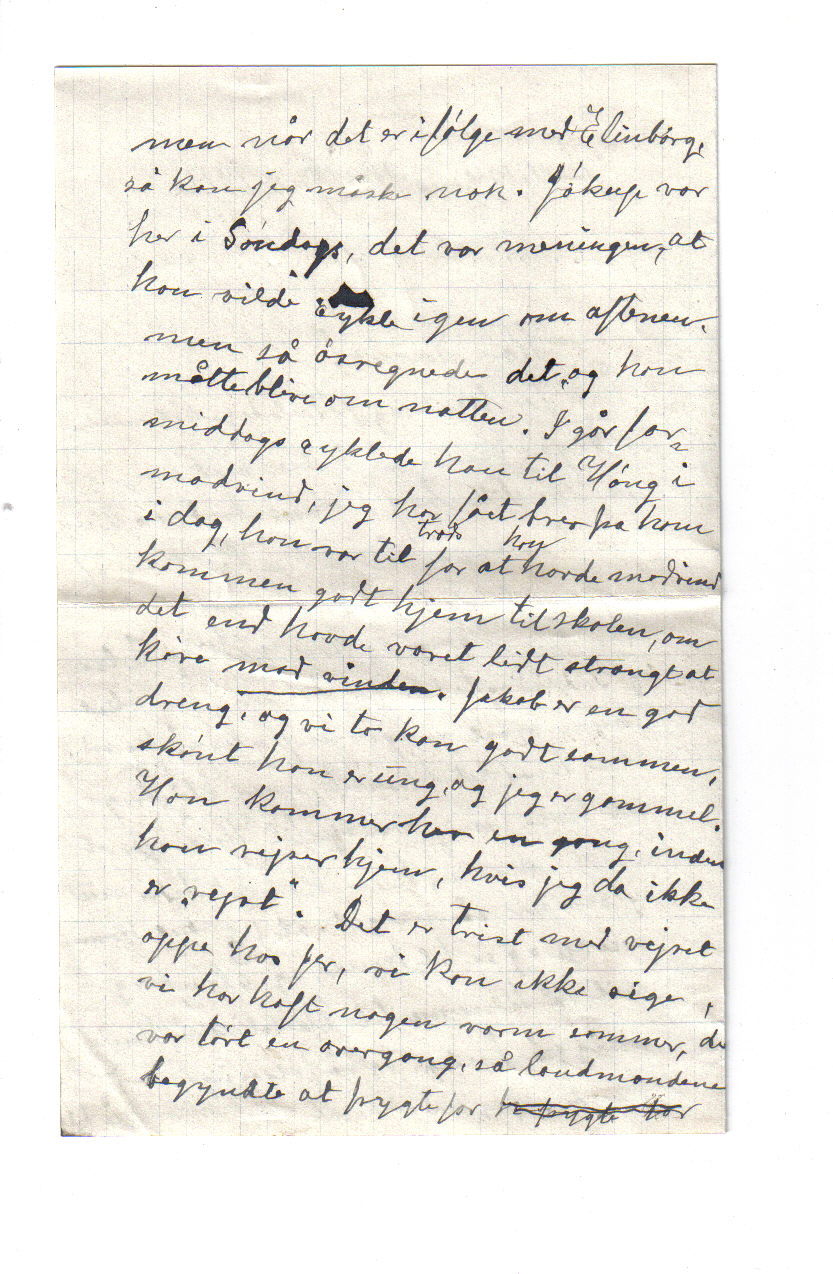 men når det er i følge med Elinborg,
så kan jeg måske nok. Jákup var
her i Søndags, det var meningen, at
han vilde cykle igen om aftenen.
men så ósregnede det, og han
måtte blive om natten. I går for=
middags cyklede han til Hóng i
modvind, jeg har fået brev fra ham
i dag, han var til trods for at han havde modvind
kommen godt hjem til skolen, om
det end havde været lidt strengt at
køre mod vinden. Jakob er en god
dreng, og vi to kan godt sammen,
skónt han er ung, og jeg er gammel.
Han kommer her en gang, inden
han rejser hjem, hvis jeg da ikke
er „rejst". Det er trist med vejret
oppe hos jer, vi kan ikke sige,
vi har haft nogen varm sommer, de
var tórt en overgang, så landmændene
begyndte at frygte for